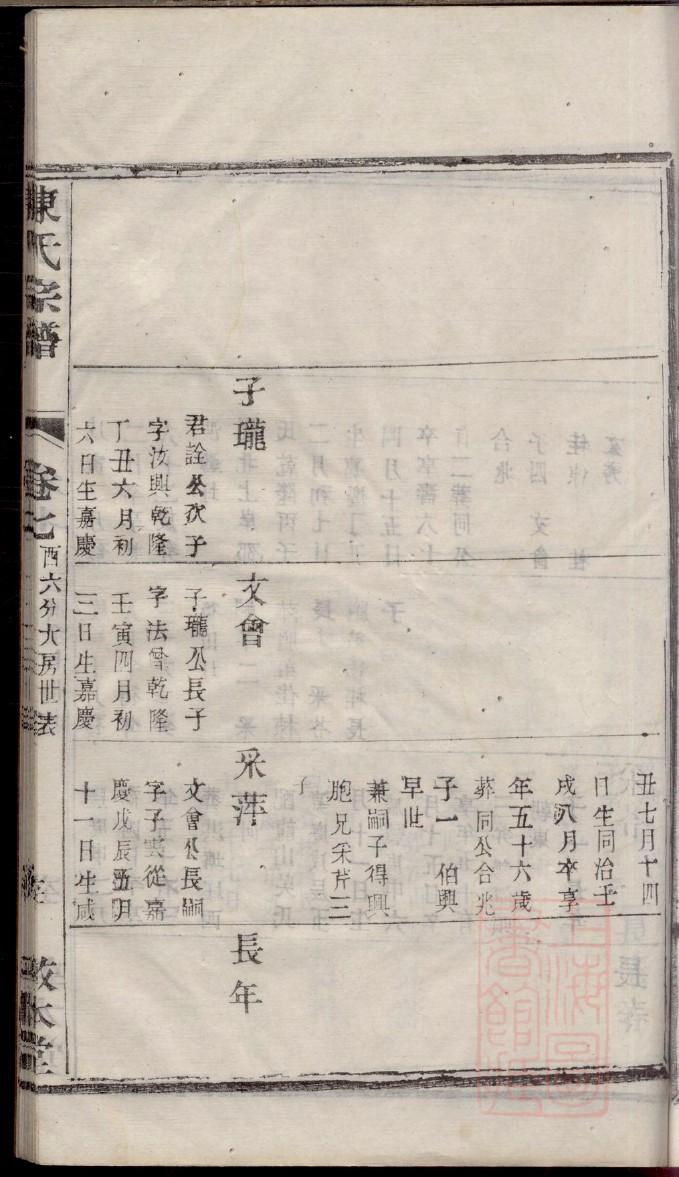 丑七月十四
日生同治壬
戌八月卒享
年五十六歲
葬同公合兆
子一 伯興
早世
兼嗣子得興
胞兄采芹三
子
子瓏
君詮公次子
字汝興乾隆
丁丑六月初
六日生嘉慶
文會
子瓏公長子
字法曾乾隆
壬寅四月初
三日生嘉慶
采萍
文會公長嗣
字子雲從嘉
慶戊辰五月
十一日生咸
長年
陳氏宗譜
卷七
酉六分大房世表
敦本堂